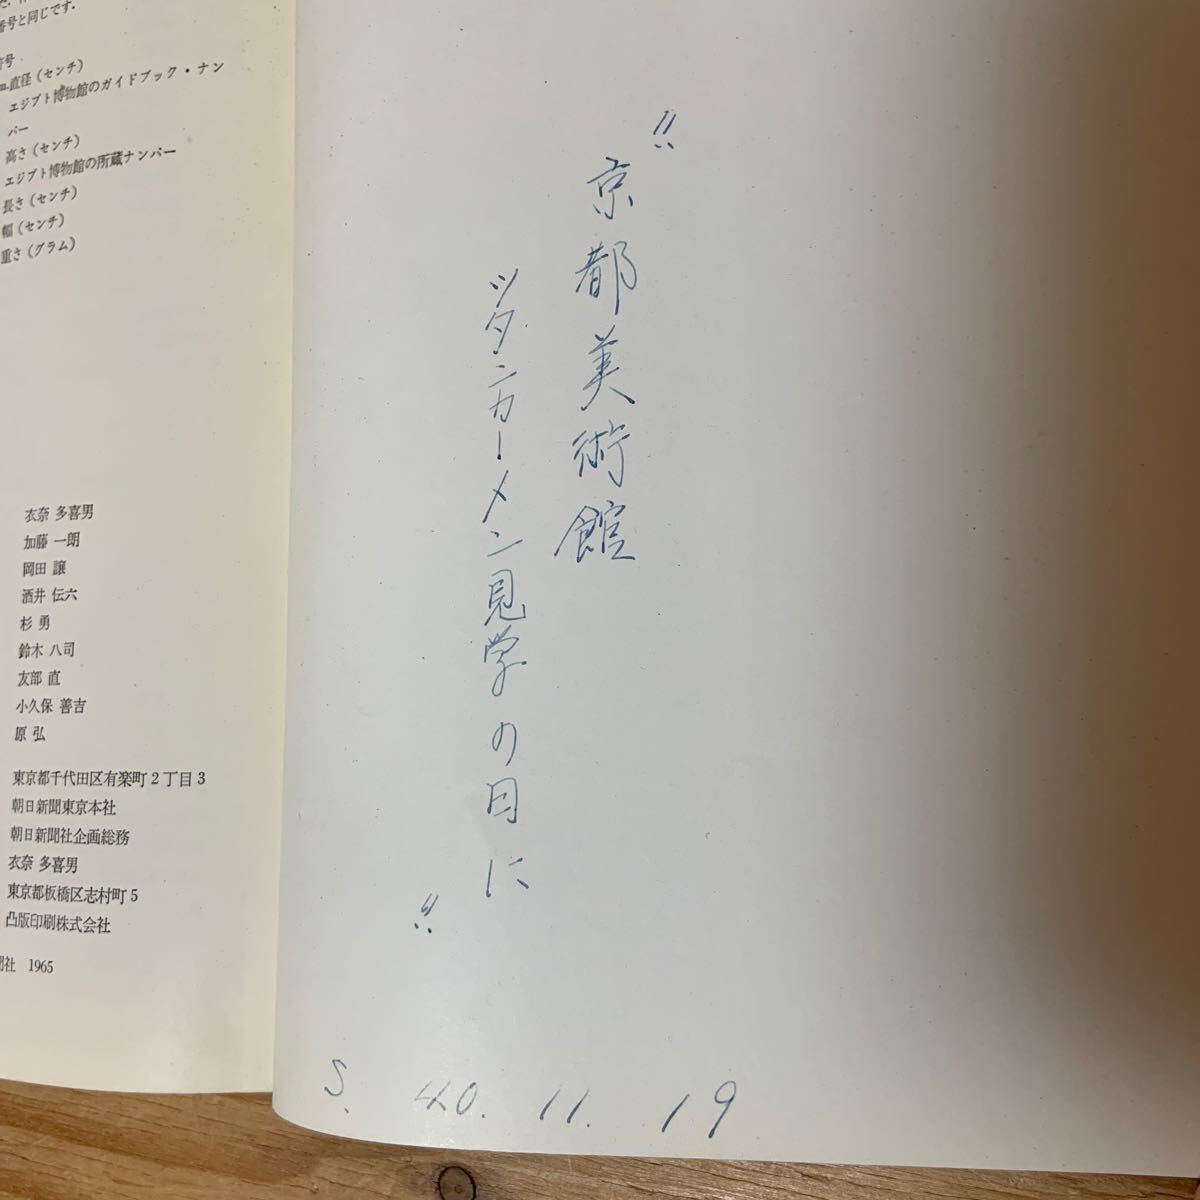 番号と同じです.
直径(センチ)
エジプト博物館のガイドブック・ナン
バー
高さ(センチ)
エジプト博物館の所蔵ナンバー
長さ(センチ)
幅(センチ)
重さ(グラム)
衣奈 多喜男
加藤 一朗
岡田 譲
酒井 伝六
杉 勇
鈴木 八司
友部 直
小久保 善吉
原 弘
東京都千代田区有楽町2丁目3
朝日新聞東京本社
朝日新聞社企画総務
衣奈 多喜男
東京都板橋区志村町5
凸版印刷株式会社
聞社 1965
〃京都美術館
ツタンカーメン見学の日に〃
S. 40. 11. 19